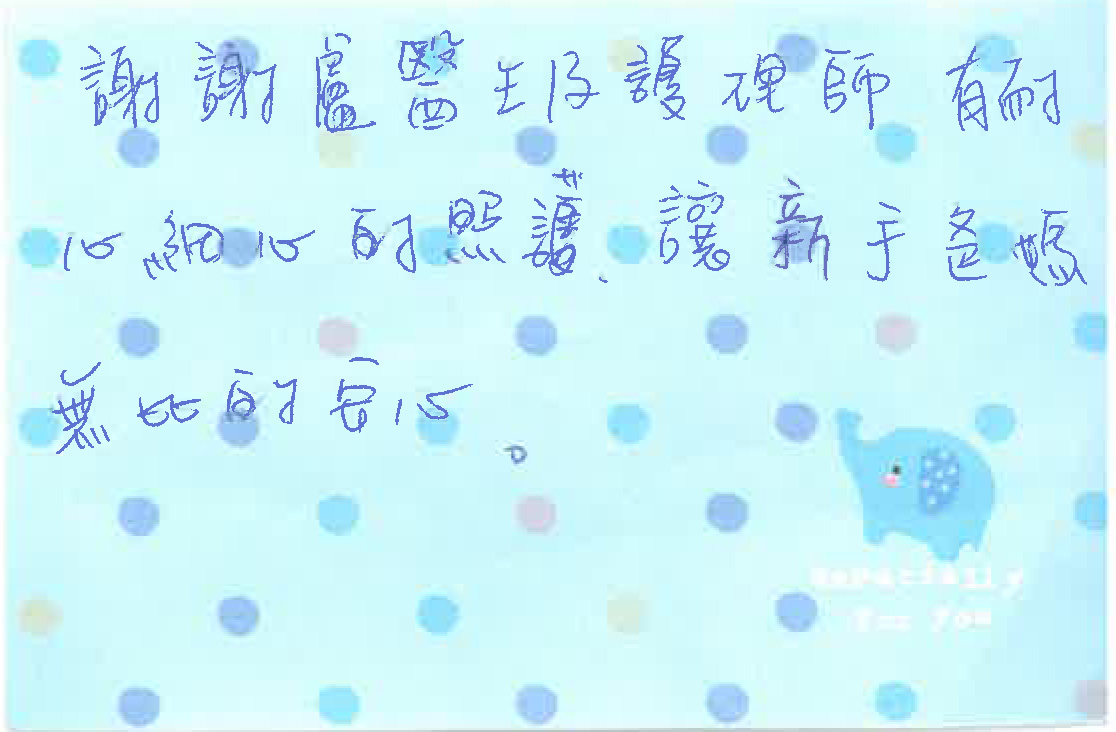 謝謝盧醫生及護理師有耐
心細心的照護、讓新手爸媽
無比的安心。
for you